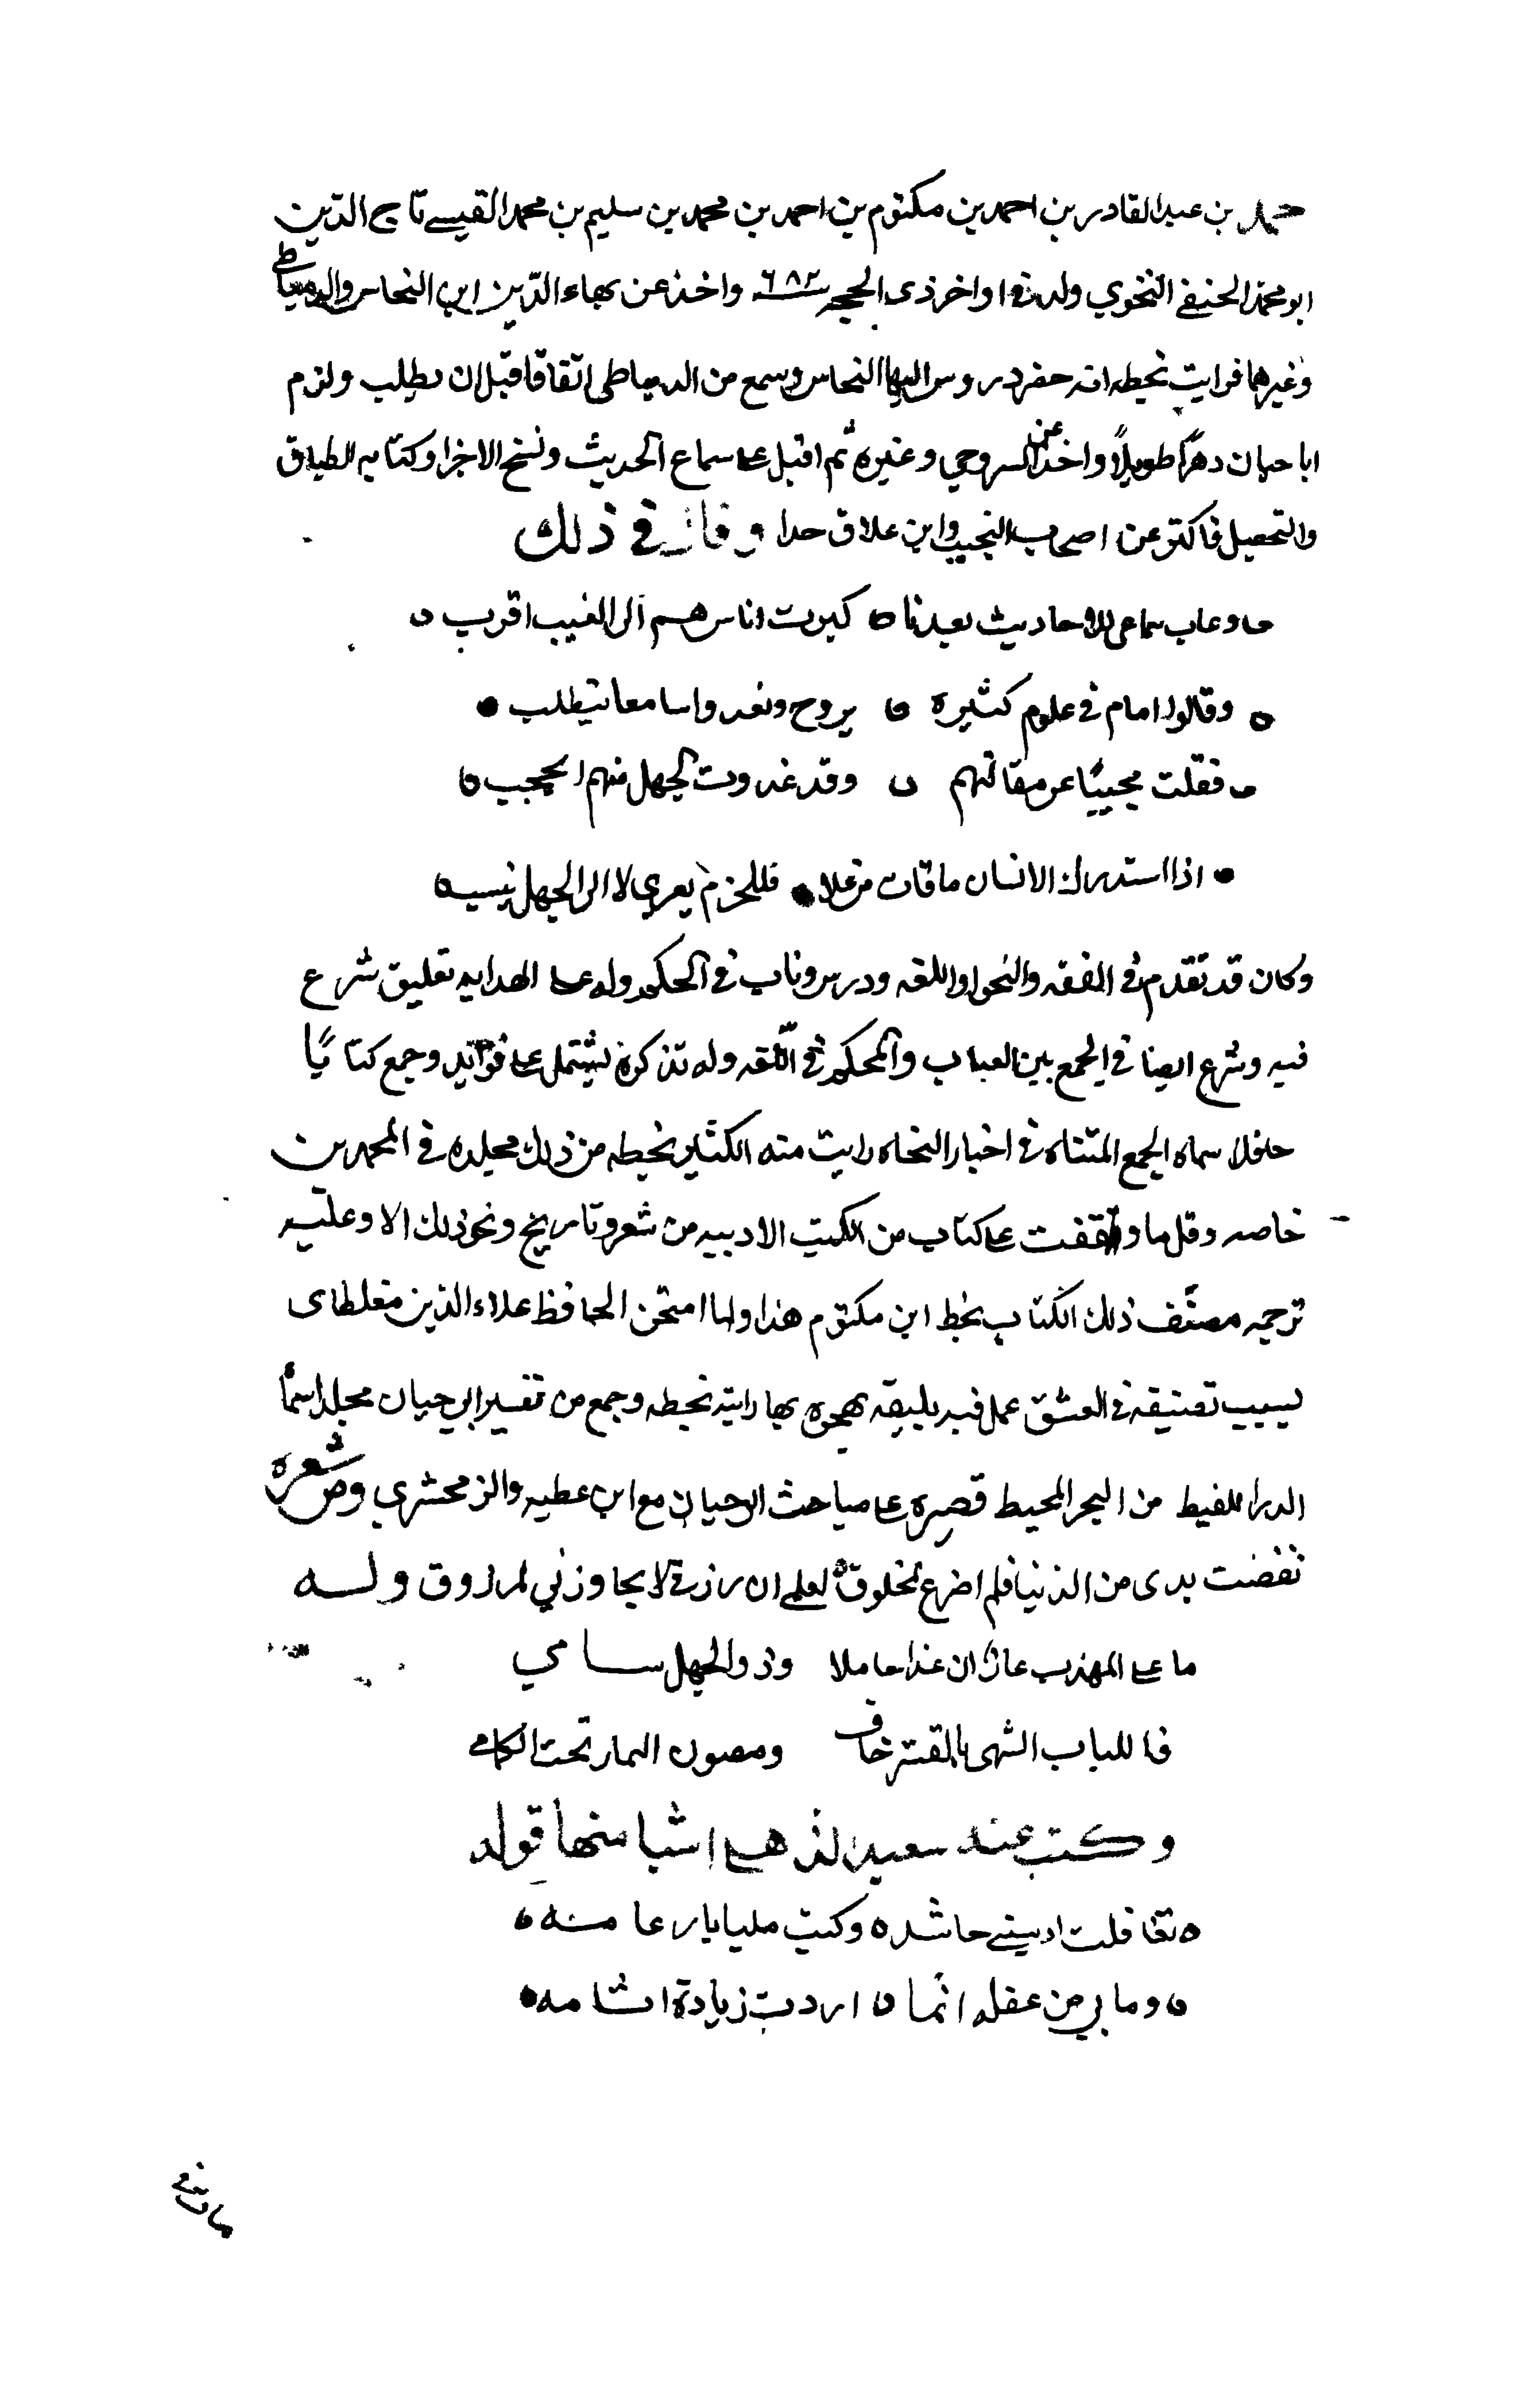 احمد بن عبد القادر بن احمد بن مكتوم بن احمد بن محمد بن سليم بن محمد القيسي تاج الدين
ابو محمد الحنفي النحوي ولد في اواخر ذي الحجه سنة ٦٨٢ واخذ عن بهاء الدين ابن النحاس والدمياطي
وغيرهما فرايت بخطه انه حضر دروس البها النحاس وسمع من الدمياطي اتفاقا قبل ان يطلب ولزم
ابا حيان دهرًا طويلًا واخذ عن السروجي وغيره ثم اقبل على سماع الحديث ونسخ الاجزا وكتابه الطباق
والتحصيل فاكثر عن اصحاب النجيب وابن علاق جدا وقال في ذلك
وعاب سماعي للاحاديث بعدما كبرت اناس هم الى الغيب اقرب
وقالوا امام في علوم كثيره يروح ويغدوا سامعا يتطلب
فقلت مجيبًا عن مقالتهم وقد غدوت لجهل منهم اتعجب
اذا استدرك الانسان ما فات من علا فللحزم يعزي لا الى الجهل ينسب
وكان قد تقدم في الفقه والنحو واللغه ودرس وناب في الحكم وله على الهدايه تعليق شرع
فيه وشرع ايضا في الجمع بين العباب والمحكم في اللغه وله تذكرة تشتمل على فوائد وجمع كتابًا
حافلا سماه الجمع المتناه في اخبار النحاه رايت منه الكثير بخطه من ذلك مجلده في المحمدين
خاصه وقل ما وقفت على كتاب من الكتب الادبيه من شعر وتاريخ ونحو ذلك الا وعليه
ترجمه مصنف ذلك الكتاب بخط ابن مكتوم هذا ولما امتحن الحافظ علاء الدين مغلطاى
بسبب تصنيفه في العشق عمل فيه بليقه يهجوه بها رايته بخطه وجمع من تفسير ابي حيان مجلدا سماه
الدر اللقيط من البحر المحيط قصره على مباحث ابي حيان مع ابن عطيه والزمخشري ومن شعره
نفضت يدى من الدنيا فلم اضرع لمخلوق لعلمي ان رزقي لا يجاوزني لمرزوق وله
ما على المهذب عار ان غدا خاملا وذو الجهل سامي
فاللباب الشهى بالقشر خاف ومصون الثمار تحت الكمام
وكتب عنه سعيد الذهلي اشيا منها قوله
تغافلت اذ سبني حاسد وكنت مليا بارغامه
وما بي من غفله انما اردت زيادة اثامه
مات في